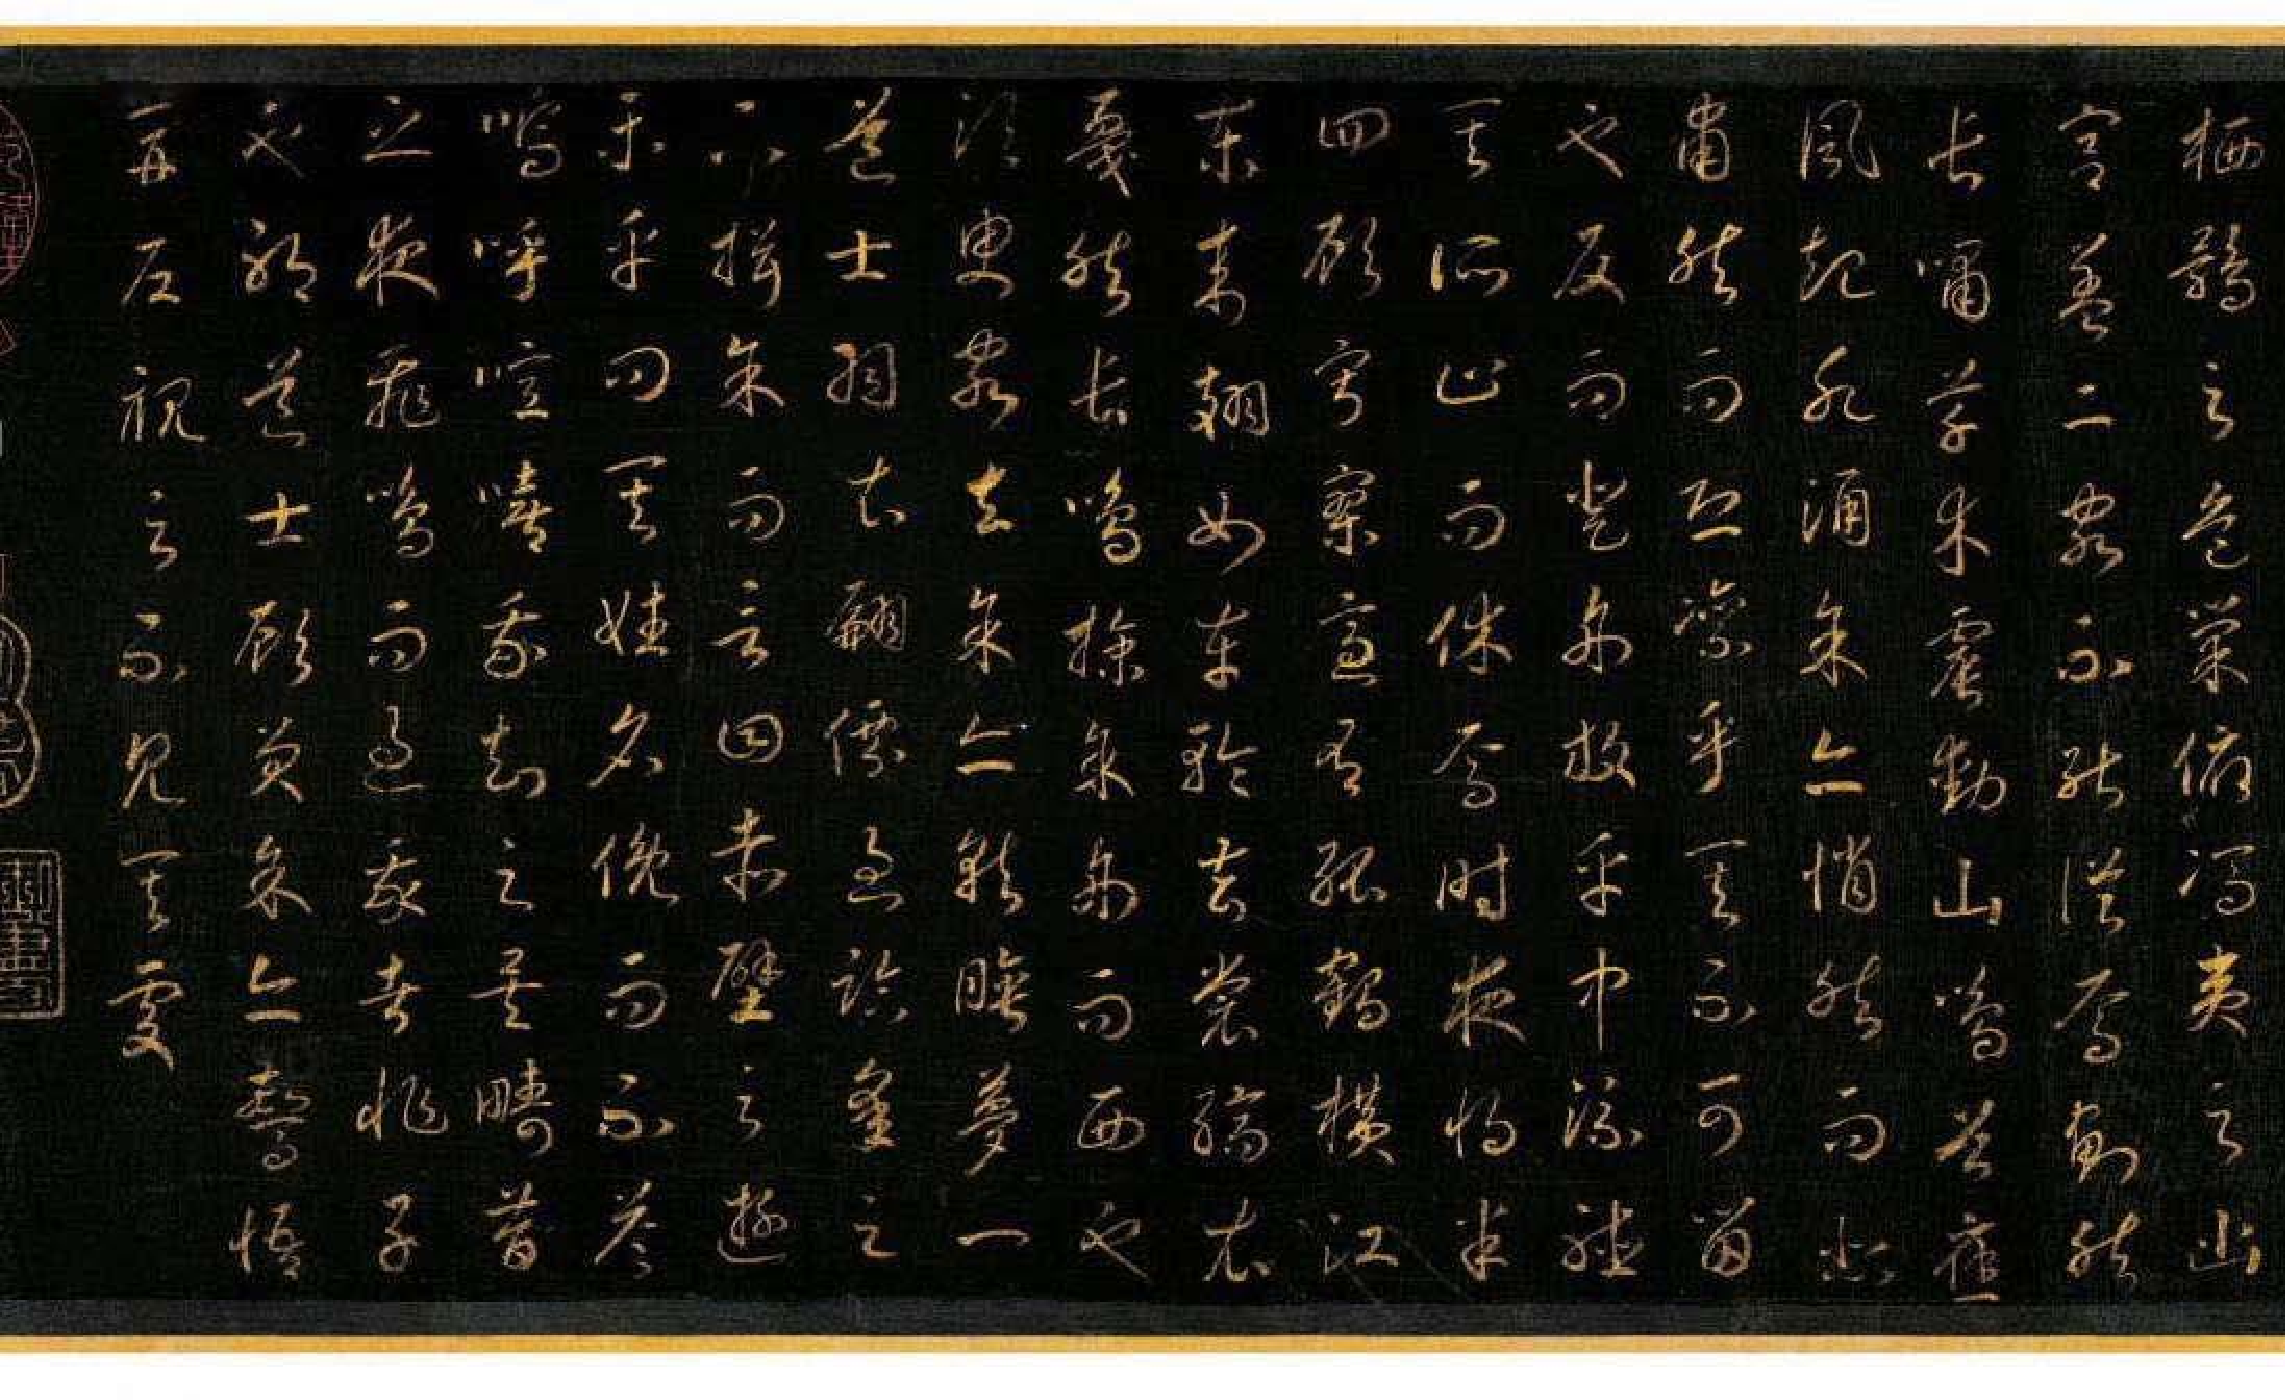 栖鶻之危巢俯馮夷之幽
宮蓋二客不能從焉劃然
長嘯草木震動山鳴谷應
風起水涌予亦悄然而悲
肅然而恐凜乎其不可留
也反而登舟放乎中流聽
其所止而休焉時夜將半
四顧寂寥適有孤鶴橫江
東來翅如車輪玄裳縞衣
戛然長鳴掠予舟而西也
須臾客去予亦就睡夢一
道士羽衣翩僊過臨皋之
下揖予而言曰赤壁之遊
樂乎問其姓名俛而不答
嗚呼噫嘻我知之矣疇昔
之夜飛鳴而過我者非子
也耶道士顧笑予亦驚悟
開戶視之不見其處